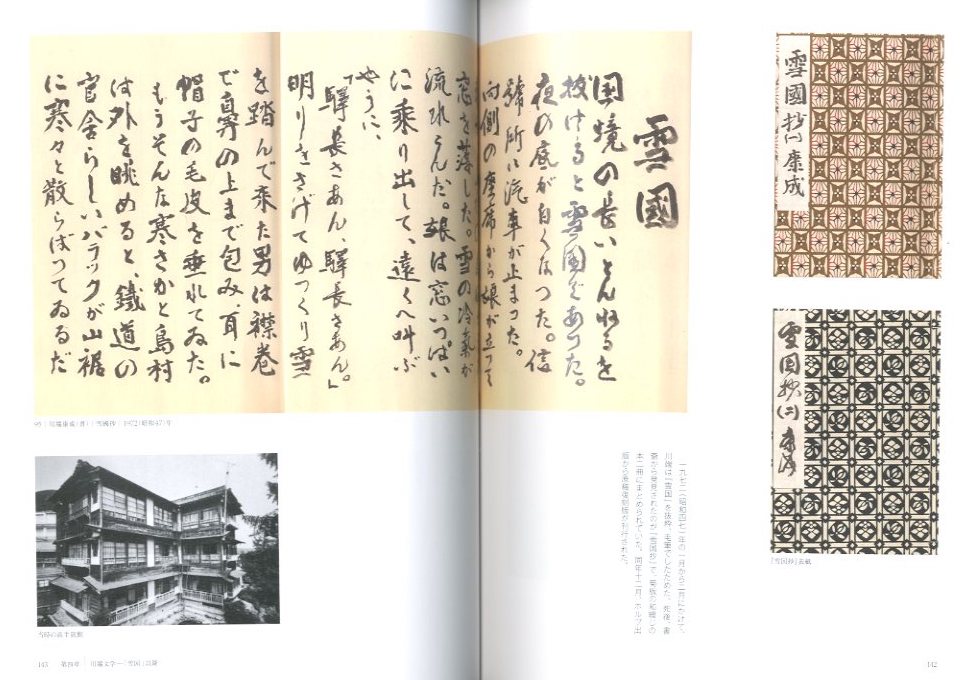 雪國抄(一) 康成
雪国抄(二) 康成
『雪国抄』表紙
142
雪國
国境の長いとんねるを
抜けると雪国であつた。
夜の底が白くなつた。信
號所に汽車が止まつた。
向側の座席から娘が立つて
窓を落した。雪の冷氣が
流れこんだ。娘は窓いつぱい
に乗り出して、遠くへ叫ぶ
やうに、
「驛長さあん、驛長さあん。」
明りをさげてゆつくり雪
を踏んで来た男は襟巻
で鼻の上まで包み、耳に
帽子の毛皮を垂れてゐた。
もうそんな寒さかと島村
は外を眺めると、鐵道の
官舎らしいバラックが山裾
に寒々と散らばつてゐるだ
一九七二(昭和四七)年の一月から二月にかけて、
川端は『雪国』を抜粋、毛筆でしたためた。死後、書
斎から発見されたのが『雪国抄』で、菊版の和綴じの
本二冊にまとめられていた。同年十二月、ホルプ出
版から原稿復刻版が刊行された。
95 川端康成(書)「雪國抄」 1972(昭和47)年
当時の高半旅館
143 第四章 川端文学―『雪国』